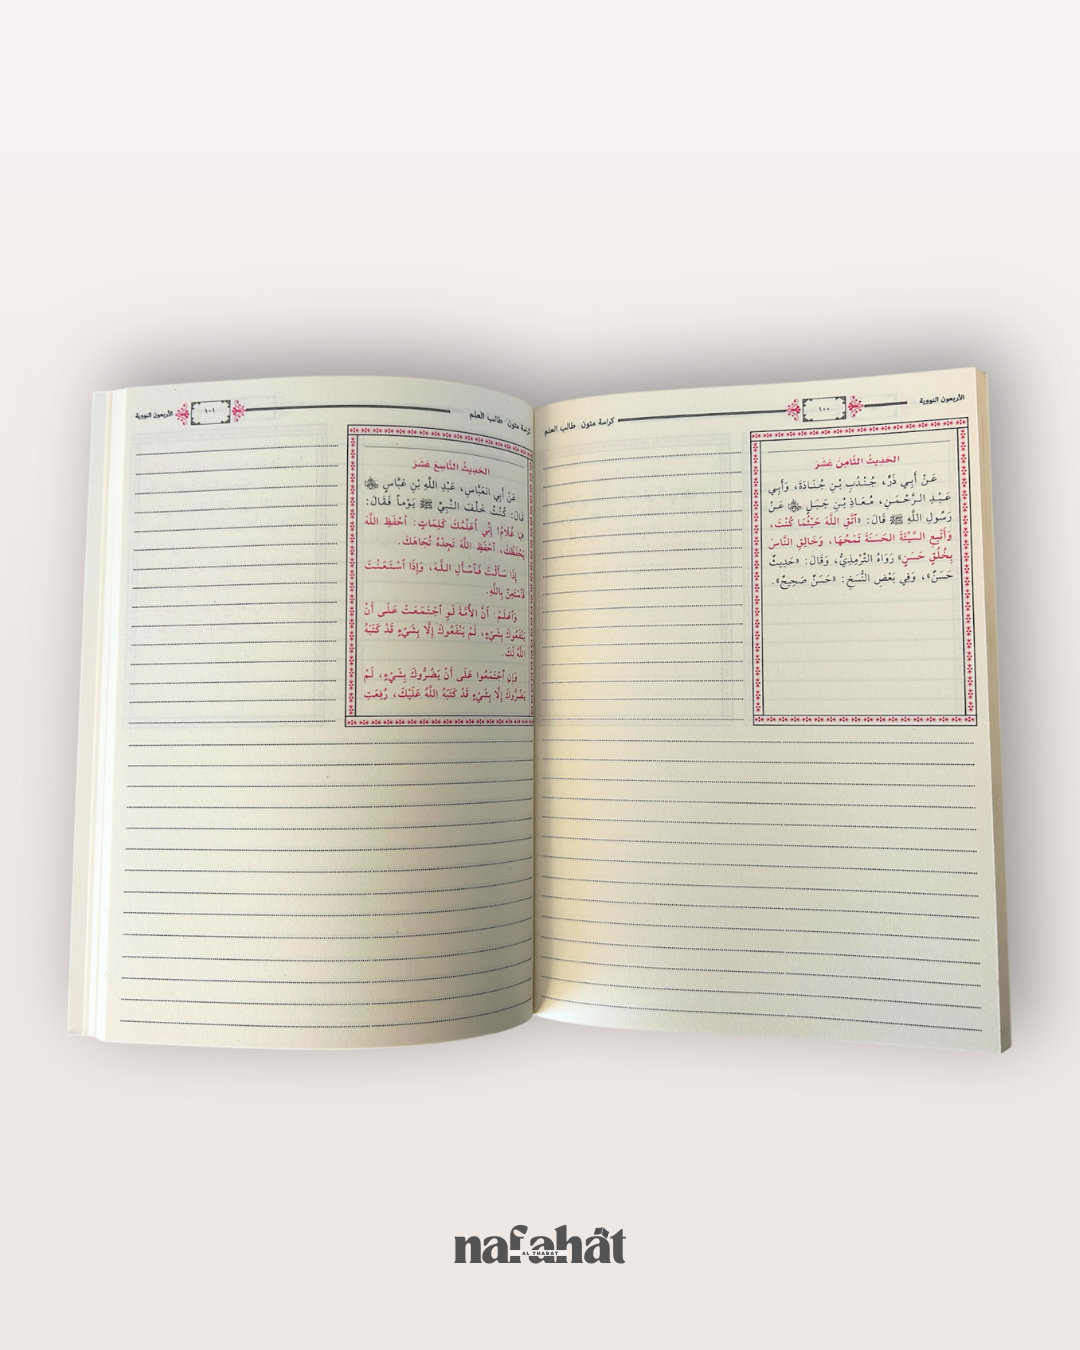 الأربعون النووية
١٠٠
كراسة متون طالب العلم
الحَدِيثُ الثَّامِنَ عَشَرَ
عَنْ أَبِي ذَرٍّ، جُنْدُبِ بْنِ جُنَادَةَ، وَأَبِي
عَبْدِ الرَّحْمَنِ، مُعَاذِ بْنِ جَبَلٍ ﵄ عَنْ
رَسُولِ اللَّهِ ﷺ قَالَ: «ٱتَّقِ اللَّهَ حَيْثُمَا كُنْتَ،
وَأَتْبِعِ السَّيِّئَةَ الحَسَنَةَ تَمْحُهَا، وَخَالِقِ النَّاسَ
بِخُلُقٍ حَسَنٍ» رَوَاهُ التِّرْمِذِيُّ، وَقَالَ: «حَدِيثٌ
حَسَنٌ»، وَفِي بَعْضِ النُّسَخِ: «حَسَنٌ صَحِيحٌ».
كراسة متون طالب العلم
١٠١
الأربعون النووية
الحَدِيثُ التَّاسِعَ عَشَرَ
عَنْ أَبِي العَبَّاسِ، عَبْدِ اللَّهِ بْنِ عَبَّاسٍ ﵄
قَالَ: كُنْتُ خَلْفَ النَّبِيِّ ﷺ يَوْماً فَقَالَ:
«يَا غُلَامُ! إِنِّي أُعَلِّمُكَ كَلِمَاتٍ: ٱحْفَظِ اللَّهَ
يَحْفَظْكَ، ٱحْفَظِ اللَّهَ تَجِدْهُ تُجَاهَكَ.
إِذَا سَأَلْتَ فَٱسْأَلِ اللَّهَ، وَإِذَا ٱسْتَعَنْتَ
فَٱسْتَعِنْ بِاللَّهِ.
وَٱعْلَمْ: أَنَّ الأُمَّةَ لَوِ ٱجْتَمَعَتْ عَلَى أَنْ
يَنْفَعُوكَ بِشَيْءٍ، لَمْ يَنْفَعُوكَ إِلَّا بِشَيْءٍ قَدْ كَتَبَهُ
اللَّهُ لَكَ.
وَإِنِ ٱجْتَمَعُوا عَلَى أَنْ يَضُرُّوكَ بِشَيْءٍ، لَمْ
يَضُرُّوكَ إِلَّا بِشَيْءٍ قَدْ كَتَبَهُ اللَّهُ عَلَيْكَ، رُفِعَتِ
nafahât
AL THABAT